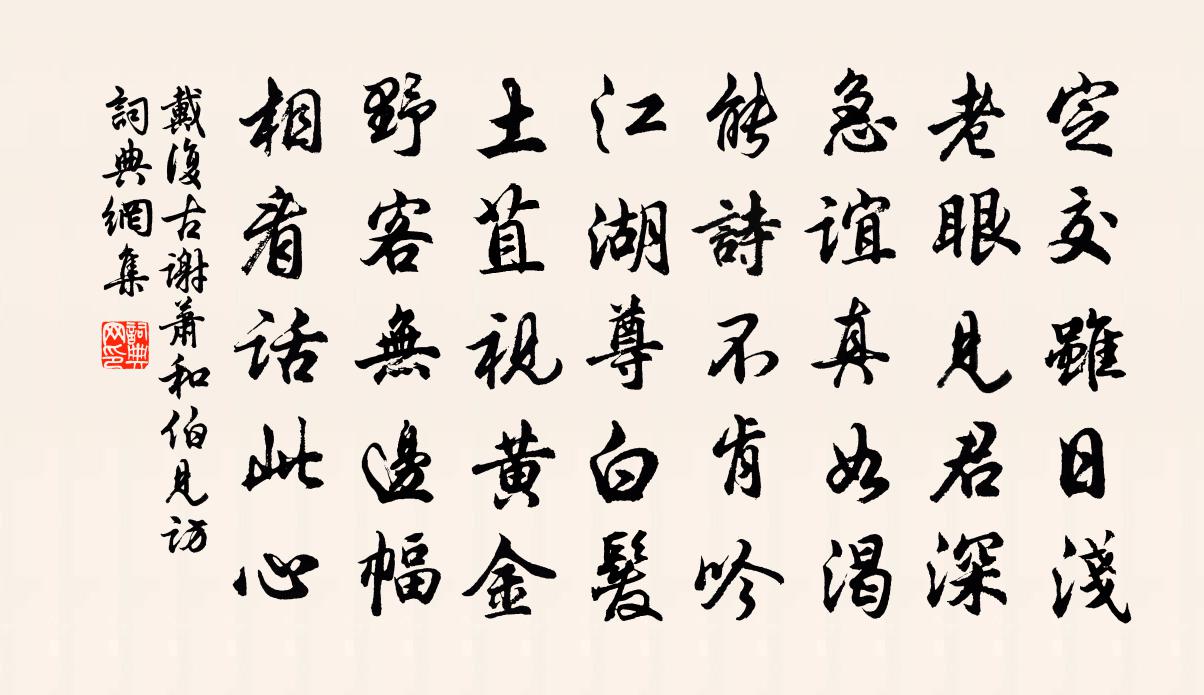 定交雖日淺
老眼見君深
急誼真如渴
能詩不肯吟
江湖尊白髮
土苴視黃金
野客無邊幅
相看話此心
戴復古謝蕭和伯見訪
詞典網集
詞典網印